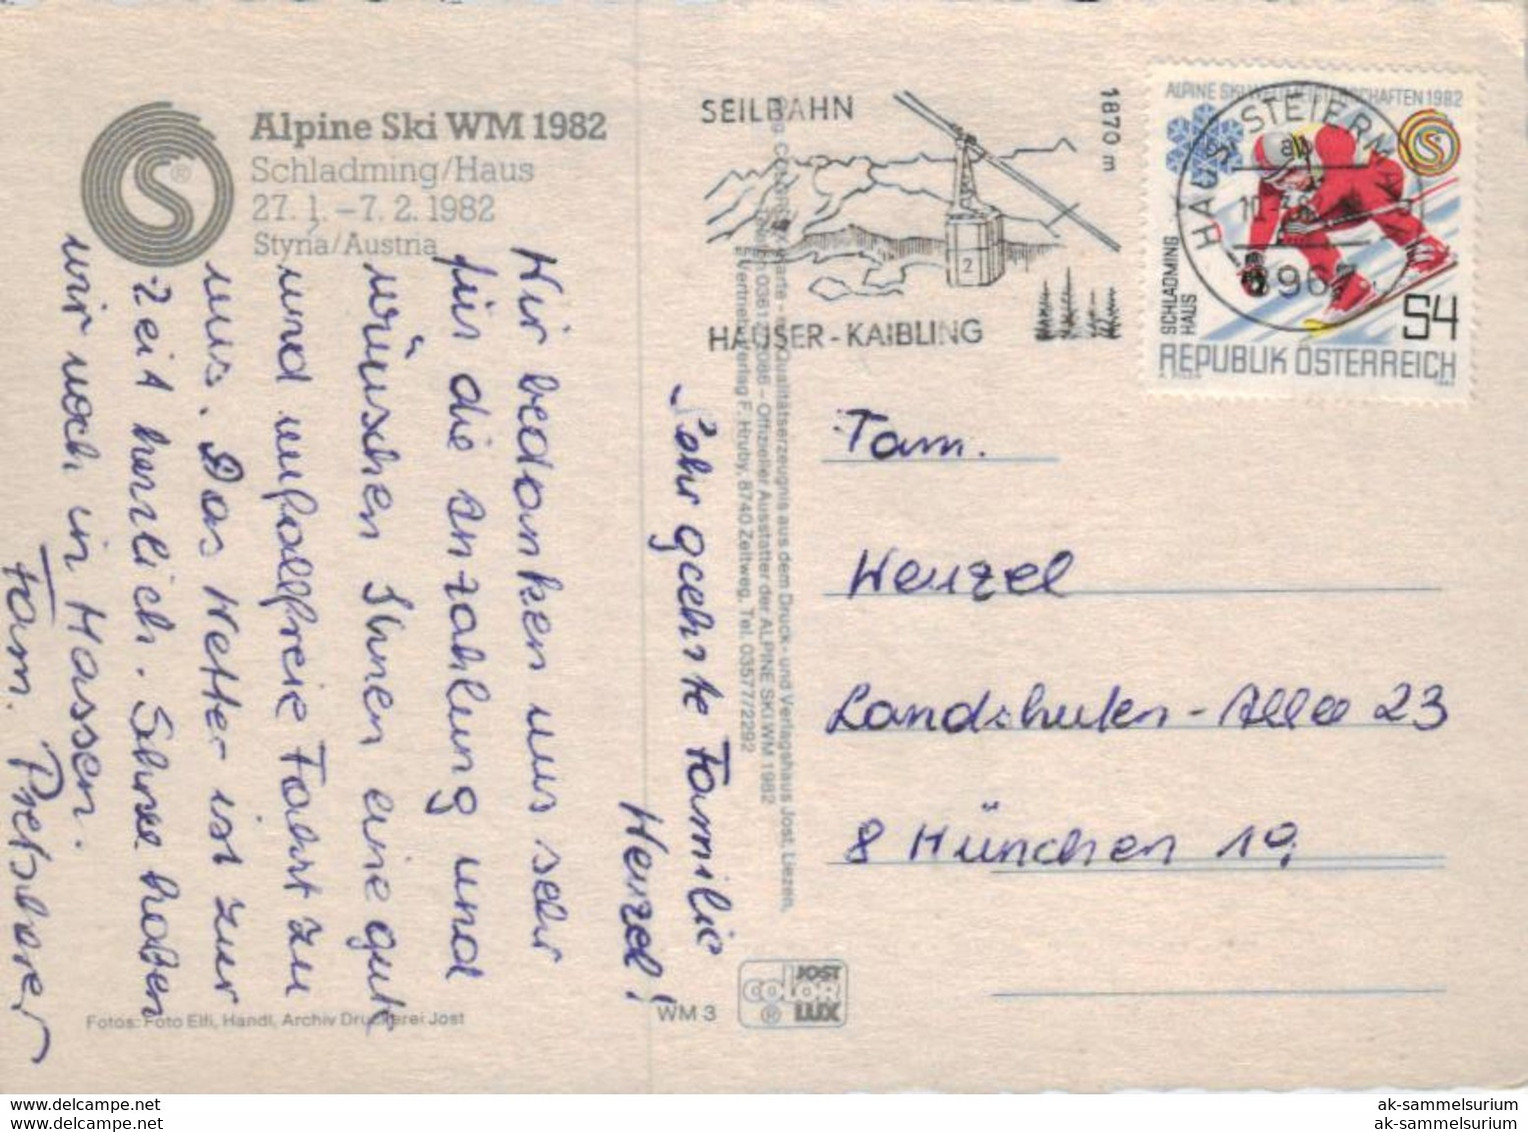 Alpine Ski WM 1982
Schladming/Haus
27. 1. – 7. 2. 1982
Styria/Austria
Sehr geehrte Familie
Wenzel!
Wir bedanken uns sehr
für die Anzahlung und
wünschen Ihnen eine gute
und unfallfreie Fahrt zu
uns. Das Wetter ist zur
Zeit herrlich. Schnee haben
wir noch in Massen.
Fam.
Fotos: Foto Elfi, Handl, Archiv Druckerei Jost
WM 3
JOST
COLOR
LUX
®
Qualitätserzeugnis aus dem Druck- und Verlagshaus Jost, Liezen,
Offizieller Ausstatter der ALPINE SKI WM 1982
Vertrieb: Verlag F. Hruby, 8740 Zeltweg, Tel. 03577/2292
SEILBAHN
1870 m
2
HAUSER-KAIBLING
ALPINE SKI WELTMEISTERSCHAFTEN 1982
SCHLADMING
HAUS
S4
REPUBLIK ÖSTERREICH
Fam.
Wenzel
Landshuter-Allee 23
8 München 19
ak-sammelsurium.com
ak-sammelsurium.com
ak-sammelsurium
ak-sammelsurium